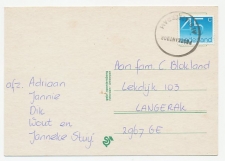 afz. Adriaan
Jannie
Dik
Wout en
Janneke Stuij
Aan fam C Blokland
Leidijk 103
LANGERAK
2967 GE
45 c